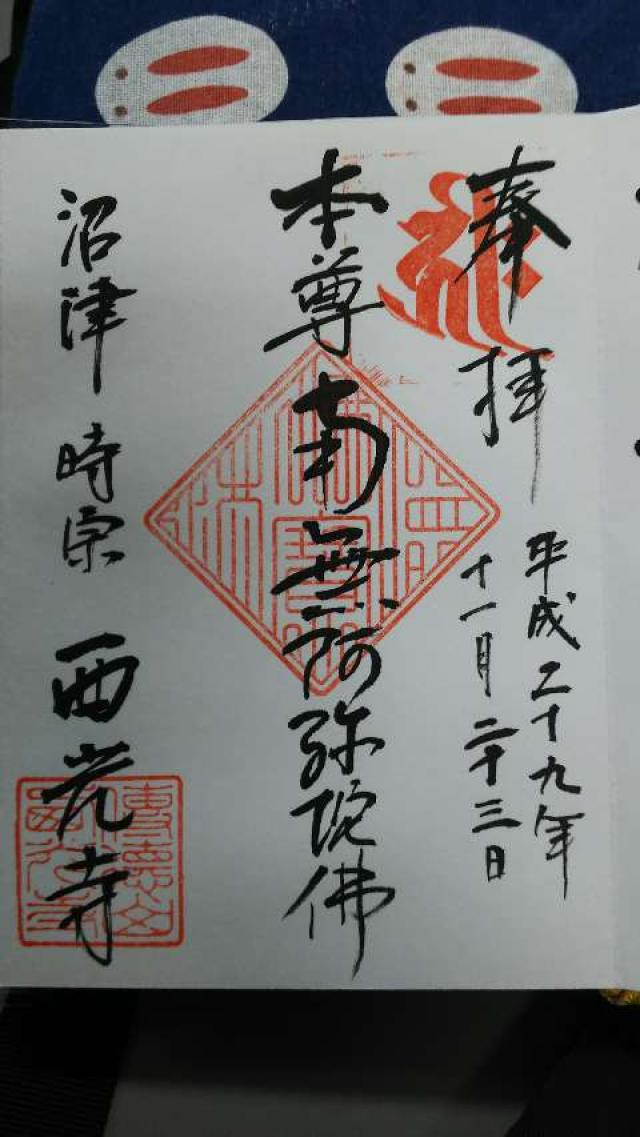 奉拝
平成二十九年
十一月二十三日
本尊 南無阿弥陀佛
沼津 時宗 西光寺